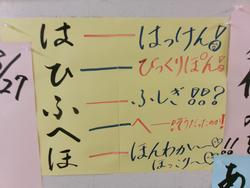 3/27
は ― はっけん!!
ひ ― びっくりぽん!!
ふ ― ふしぎ!?!?
へ ― へー!そうだったのか!
ほ ― ほんわかい〜♡
ほっこり〜♡!!
あ